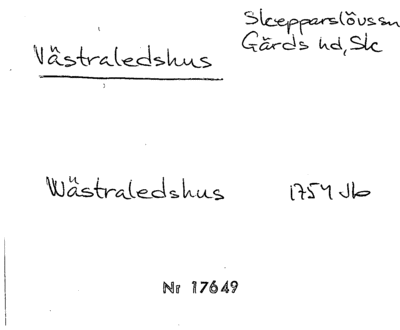 Västraledshus
Skepparslövssn
Gärds hd, Sk
Wästraledshus 1754 Jb
Nr 17649